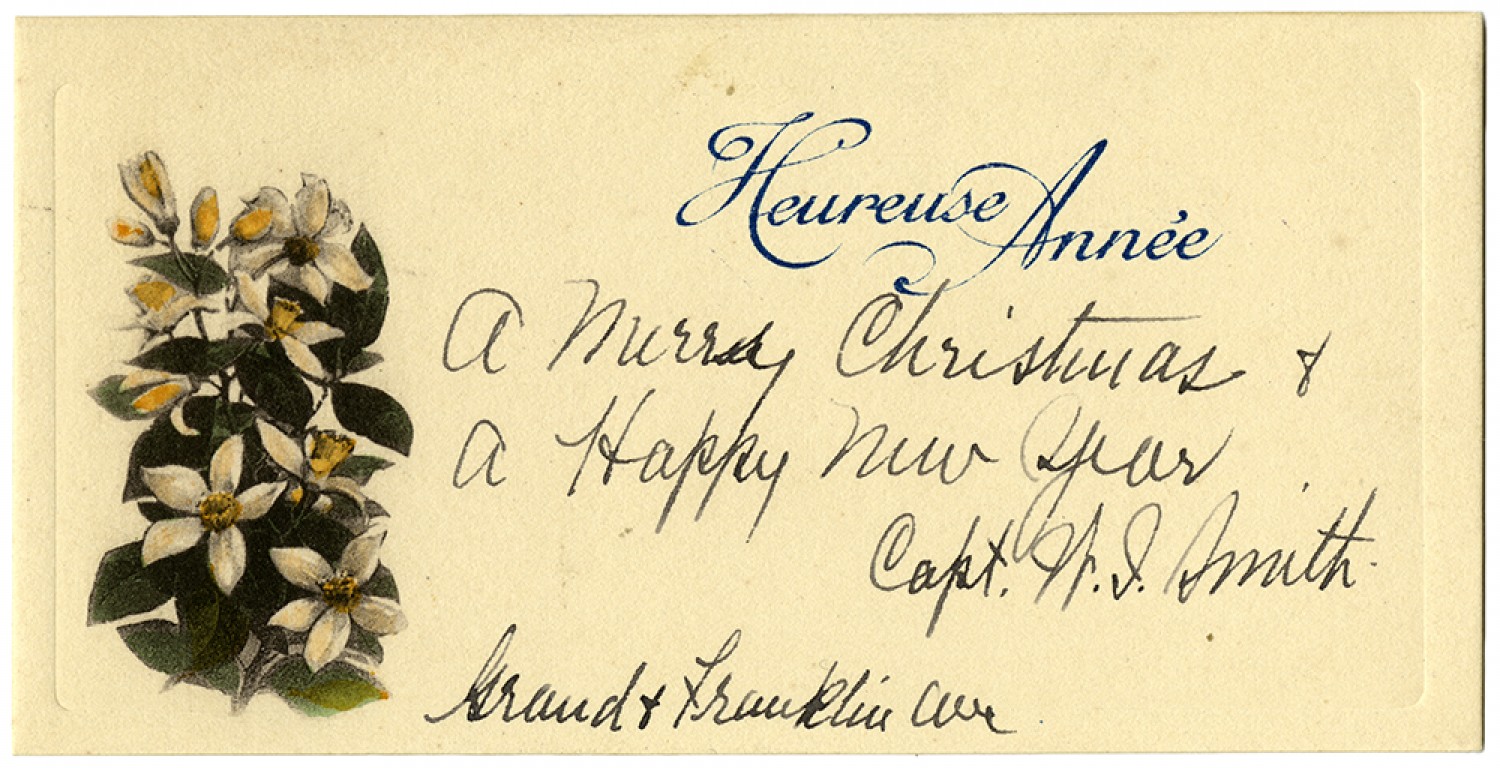 Heureuse Année
A Merry Christmas &
A Happy New Year
Capt. W. I. Smith.
Grand & Franklin Ave